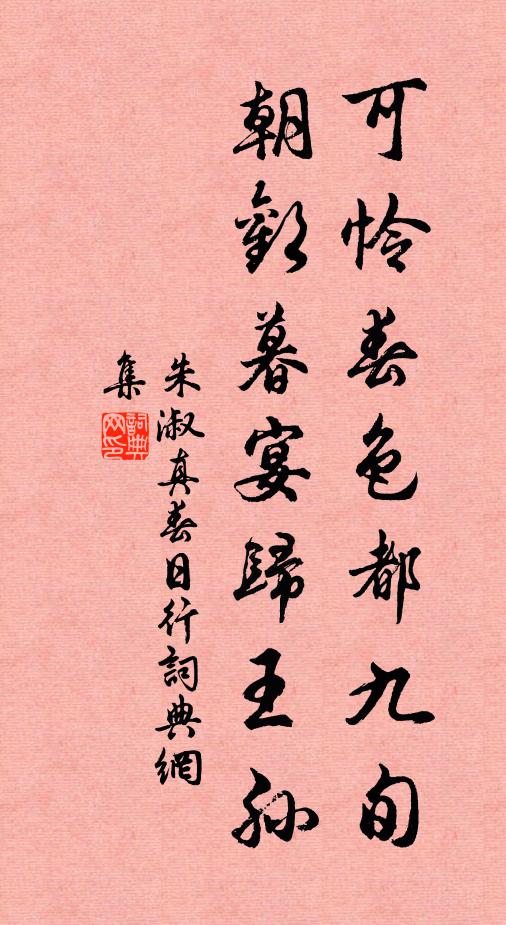 可怜春色都九旬
朝歡暮宴歸王孫
朱淑真春日行詞典網
集
詞典
网印